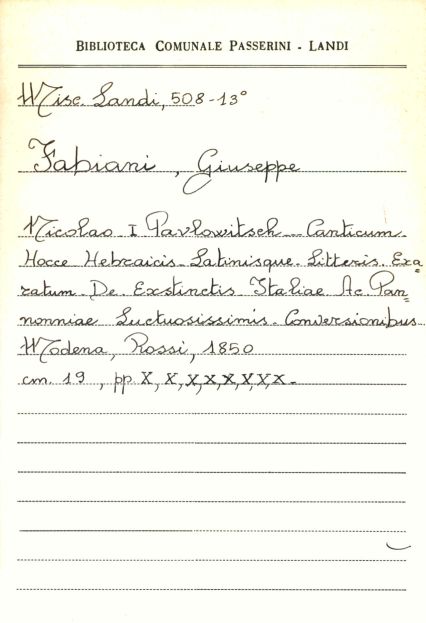 BIBLIOTECA COMUNALE PASSERINI - LANDI
Misc. Landi, 508-13°
Fabiani, Giuseppe
Nicolao I Pavlowitsch - Canticum
Hocce Hebraicis Latinisque Litteris Exa=
ratum De Exstinctis Italiae Ac Pan=
nonniae Luctuosissimis Conversionibus
Modena, Rossi, 1850
cm. 19, pp X, X, X, X, X, X, X, X -